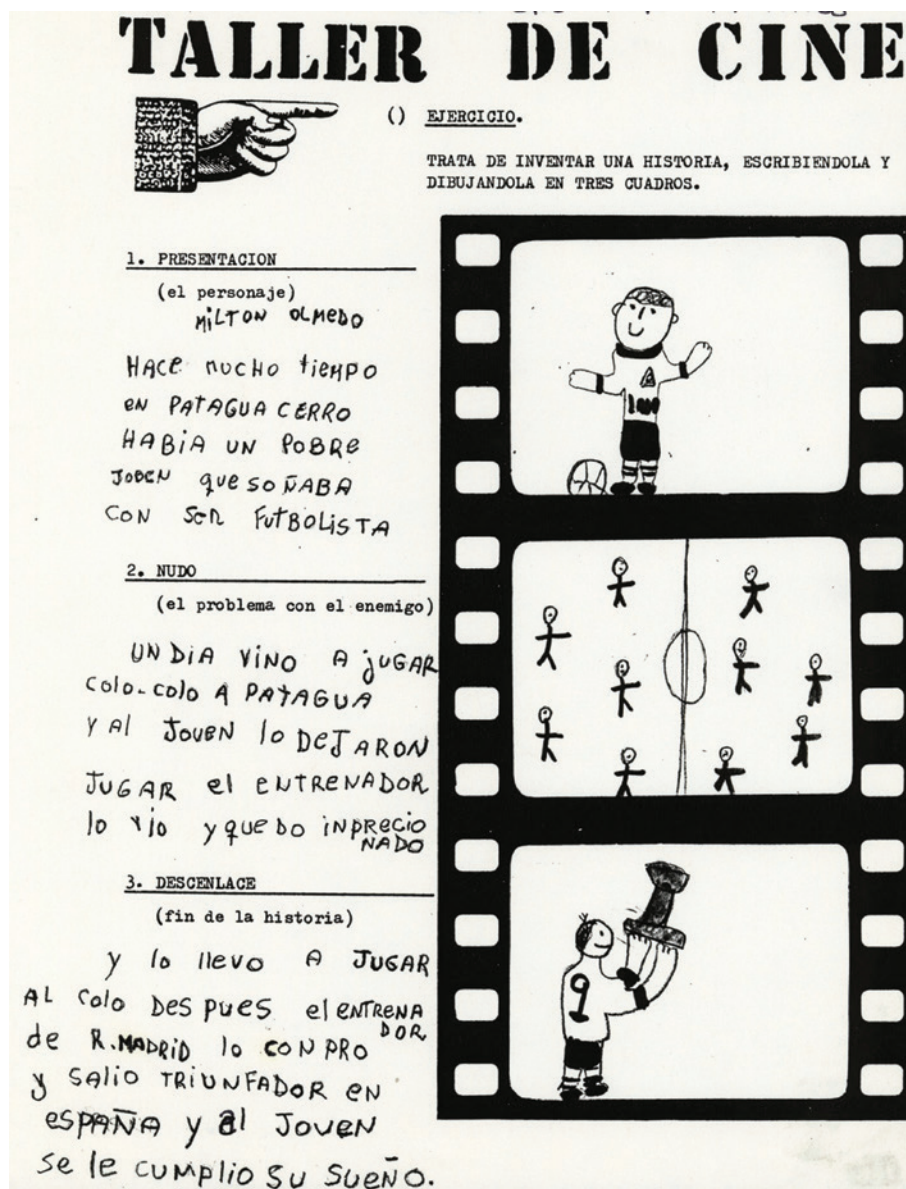 TALLER DE CINE
() EJERCICIO.
TRATA DE INVENTAR UNA HISTORIA, ESCRIBIENDOLA Y
DIBUJANDOLA EN TRES CUADROS.
1. PRESENTACION
(el personaje)
MiLTON OLMEDO
HACE mucho tiEMPO
EN PATAGUA CERRO
HABiA UN POBRe
JOBEN que SOÑABA
CON SER FUTBOLiSTA
2. NUDO
(el problema con el enemigo)
UN DiA ViNO A jUGAR
Colo-colo A PATAGUA
Y Al JOVEN lo DeJARON
JUGAR el ENTRENADOR
lo vio y queDo iNPRecio
NADO
3. DESCENLACE
(fin de la historia)
y lo llevo A JUGAR
AL Colo DesPues el ENTRENA
DOR
de R.MADRiD lo CONPRO
y SALiO TRiUNFADOR EN
esPAÑA y al JOVEN
se le cuMPlio su SUEÑO.
9